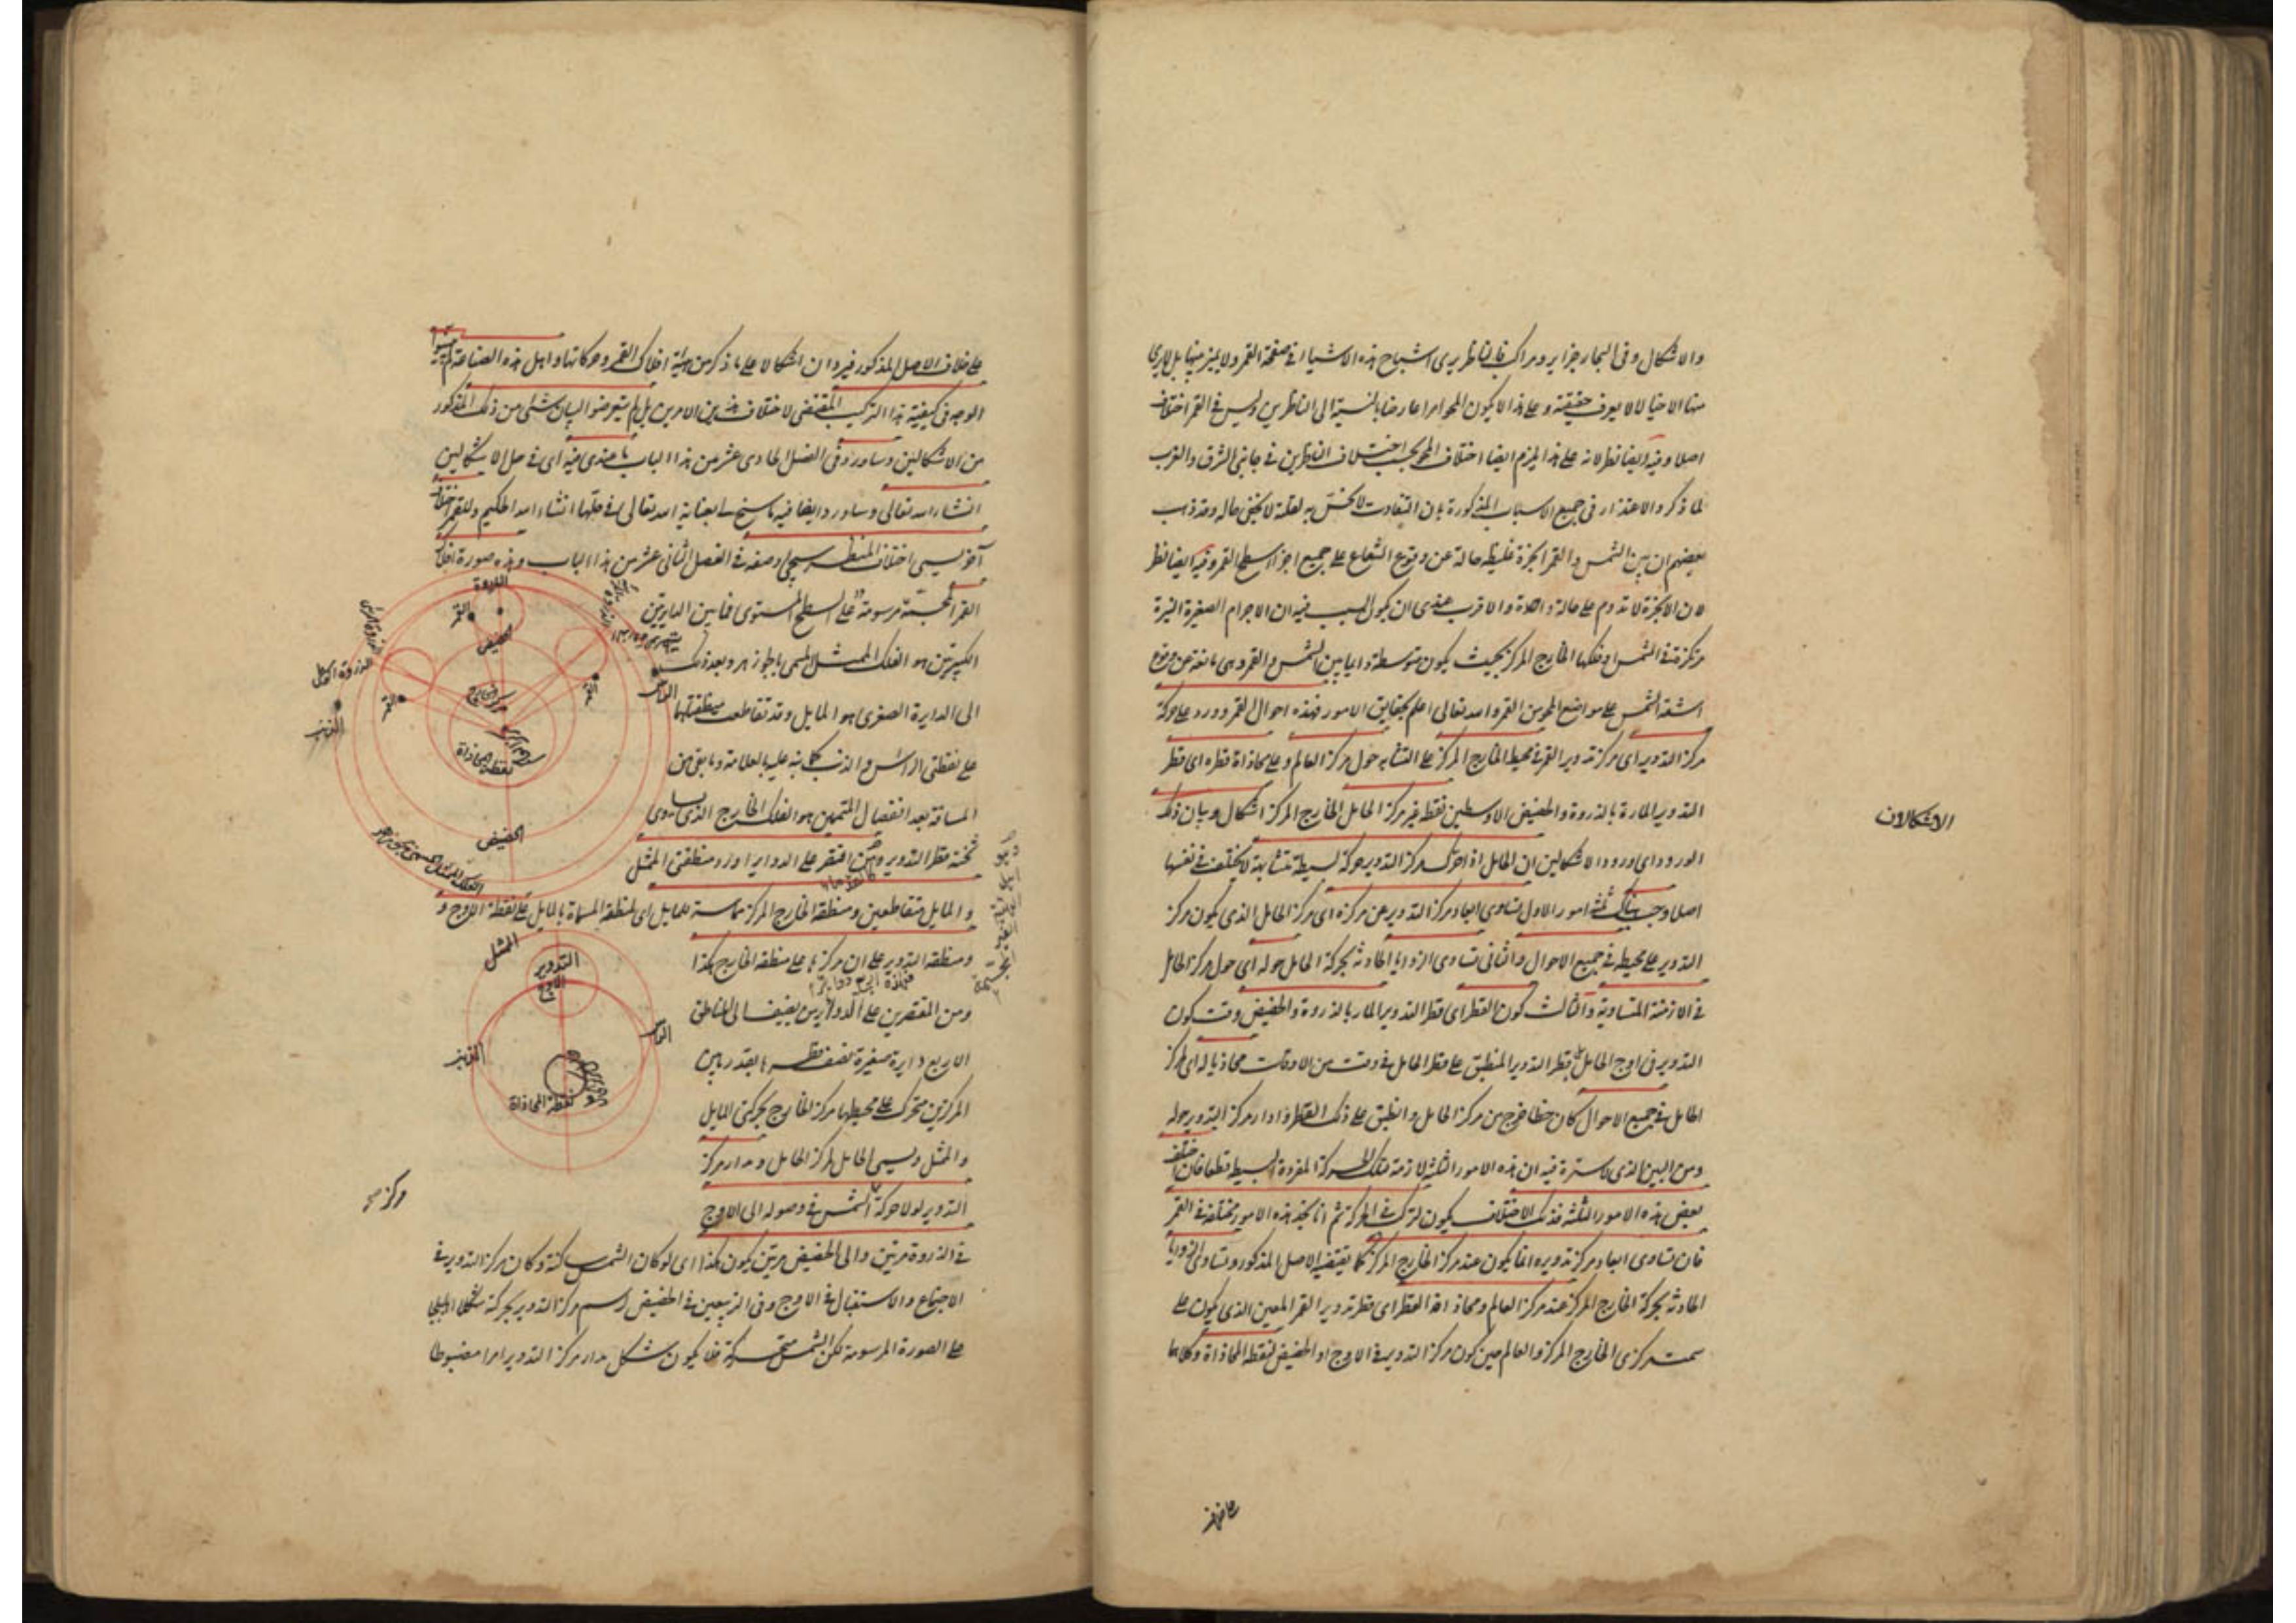 والاشكال وفى البحار جزاير ومراكب فالناظر يرى اشباح هذه الاشياء فى صفحة القمر ولا يميز بينها بل يرى
منها الاخيالا لا يعرف حقيقته وعلى هذا لا يكون المحو امرا عارضا بالنسبة الى الناظرين وليس فى القمر اختلاف
اصلا وفيه ايضا نظر لانه على هذا يلزم ايضا اختلاف المحو بحسب اختلاف الناظرين فى جانبى الشرق والغرب
لما ذكر والاعتذار فى جميع الاسباب المذكورة بان التفاوت لا يحس به لقلته لا يخفى حاله وقد ذهب
بعضهم ان بين الشمس والقمر ابخرة غليظة حالة عن وقوع الشعاع على جميع اجزاء سطح القمر وفيه ايضا نظر
لان الابخرة لا تدوم على حالة واحدة والاقرب عندى ان يكون السبب فيه ان الاجرام الصغيرة النيرة
مركزة فى الشمس او فلكها الخارج المركز بحيث يكون متوسطة دايما بين الشمس والقمر وهى مانعة عن وقوع
اشعة الشمس على مواضع المحو من القمر والله تعالى اعلم بحقايق الامور فهذه احوال القمر وورد على حركة
مركز التدوير اى مركز تدوير القمر فى محيط الخارج المركز على التشابه حول مركز العالم وعلى محاذاة قطره اى قطر
التدوير المارة بالذروة والحضيض الاوسطين نقطة غير مركز الحامل الخارج المركز اشكال وبيان ذلك
الاشكالان
الورود اى ورود الاشكالين ان الحامل اذا حرك مركز التدوير حركة بسيطة متشابهة لا يختلف فى نفسها
اصلا وجب هناك ثلثة امور الاول تساوى ابعاد مركز التدوير عن مركزه اى مركز الحامل الذى يكون مركز
التدوير على محيطه فى جميع الاحوال والثانى تساوى الزوايا الحادثة بحركة الحامل حوله اى حول مركز الحامل
فى الازمنة المتساوية والثالث كون القطر اى قطر التدوير المار بالذروة والحضيض وقت كون
التدوير فى اوج الحامل قطر التدوير المنطبق على قطر الحامل فى وقت من الاوقات محاذيا له اى لمركز
الحامل فى جميع الاحوال كان خطا خرج من مركز الحامل وانطبق على ذلك القطر وادار مركز التدوير حوله
ومن البين الذى لا سترة فيه ان هذه الامور الثلثة لازمة لتلك الحركة المفردة البسيطة قطعا فان اختلف
بعض هذه الامور الثلثة فذلك الاختلاف يكون لتركب فى الحركة ثم انا نجد هذه الامور مختلفة فى القمر
فان تساوى ابعاد مركز تدويره انما يكون عند مركز الخارج المركز كما يقتضيه الاصل المذكور وتساوى الزوايا
الحادثة بحركة الخارج المركز عند مركز العالم ومحاذاة القطر اى قطر تدوير القمر المعين الذى يكون على
سمت مركزى الخارج المركز والعالم حين كون مركز التدوير فى الاوج او الحضيض لنقطة المحاذاة وكلاهما
على خلاف الاصل المذكور فيردان اشكالا على ما ذكر من هيئة افلاك القمر وحركاتها واهل هذه الصناعة لم يبينوا
الوجه فى كيفية هذا التركيب المقتضى لاختلاف هذين الامرين بل لم يتعرضوا لبيان شئ من ذلك المذكور
من الاشكالين وساورد فى الفصل الحادى عشر من هذا الباب ما عندى فيه اى فى حل الاشكالين
انشاء الله تعالى وساورد ايضا فيه ما سنح لى بعناية الله تعالى فى حلها انشاء الله الحكيم وللقمر اختلاف
آخر يسمى اختلاف المنظر سيجئ وصفه فى الفصل الثانى عشر من هذا الباب وهذه صورة افلاك
القمر المجسمة مرسومة على السطح المستوى فما بين الدايرتين
الكبيرتين هو الفلك الممثل المسمى بالجوزهر وبعد ذلك
الى الدايرة الصغرى هو المايل وقد تقاطعت منطقتاهما
على نقطتى الراس والذنب كما نبه عليه بالعلامة وما بقى من
المسافة بعد انفصال المتممين هو الفلك الخارج الذى يساوى
ثخنه قطر التدوير ومن اقتصر على الدواير اورد منطقتى الممثل
والمايل متقاطعين ومنطقة الخارج المركز مماسة للمايل اى لمنطقة المسماة بالمايل على نقطة الاوج و
ومنطقة التدوير على ان مركزها على منطقة الخارج هكذا
ومن المقتصرين على الدواير من يضيف الى المناطق
الاربع دايرة صغيرة نصف قطرها بقدر ما بين
المركزين متحرك على محيطها مركز الخارج بحركتى المايل
والممثل ويسمى الحامل لمركز الحامل ومدار مركز
التدوير لولا حركة الشمس فى وصوله الى الاوج
فى الذروة مرتين والى الحضيض مرتين يكون هكذا اى لو كان الشمس ساكنة وكان مركز التدوير فى
الاجتماع والاستقبال فى الاوج وفى التربيعين فى الحضيض رسم مركز التدوير بحركته شكلا اهليلجيا
على الصورة المرسومة لكن الشمس متحركة فلا يكون شكل مدار مركز التدوير امرا مضبوطا
الذروة
القمر
الحضيض
القمر
القمر
الراس
الذنب
مركز الخارج
نقطة المحاذاة
الحضيض
الممثل
التدوير
الاوج
الراس
الذنب
نقطة المحاذاة